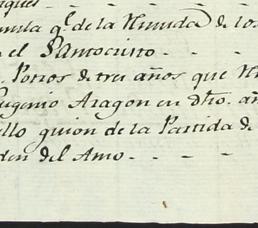 q.e de la Himuda de los
el Santocristo.
Potros de tres años que
Eugenio Aragon en dho. añ
llo guion de la Partida de
den del Amo.